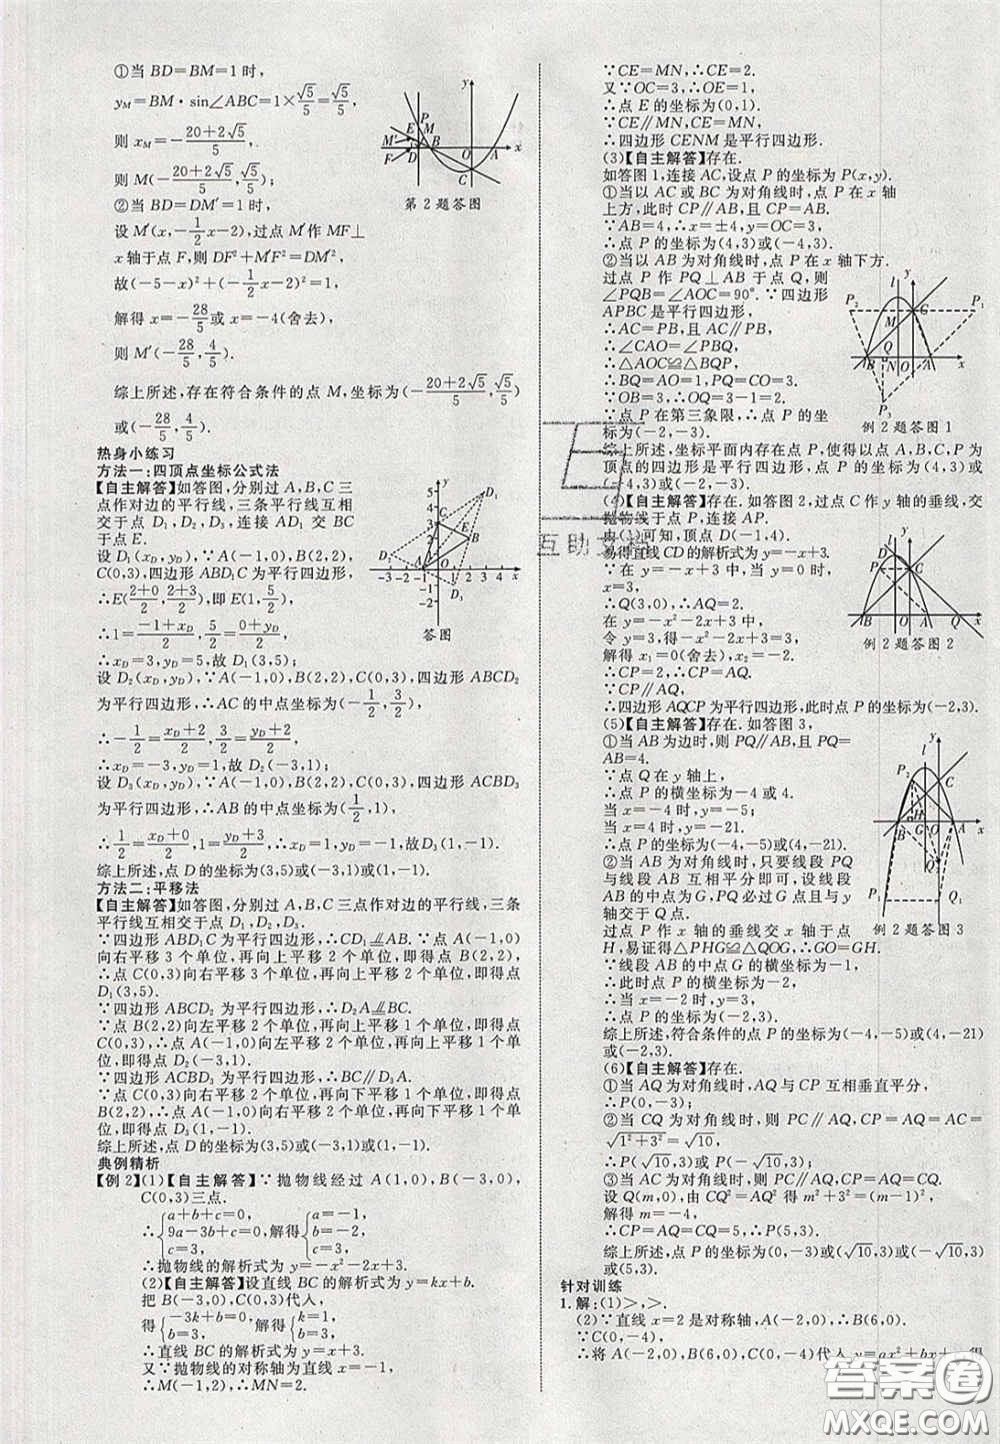 ①当 BD=BM=1时,
yM=BM·sin∠ABC=1×√5/5=√5/5,
则 xM=-(20+2√5)/5,
则 M(-(20+2√5)/5,√5/5);
②当 BD=DM′=1时,
设 M′(x,-1/2x-2),过点 M′作 MF⊥
x轴于点F,则DF²+M′F²=DM′²,
故(-5-x)²+(-1/2x-2)²=1,
解得 x=-28/5或x=-4(舍去),
则 M′(-28/5,4/5).
综上所述,存在符合条件的点 M,坐标为(-(20+2√5)/5,√5/5)
或(-28/5,4/5).
第2题答图
热身小练习
方法一:四顶点坐标公式法
【自主解答】如答图,分别过A,B,C三
点作对边的平行线,三条平行线互相
交于点 D₁,D₂,D₃,连接 AD₁ 交 BC于
于点E.
设 D₁(xD,yD),∵A(-1,0),B(2,2),
C(0,3),四边形 ABD₁C为平行四边形,
∴E((2+0)/2,(2+3)/2),即E(1,5/2),
∴1=(-1+xD)/2,5/2=(0+yD)/2,
∴xD=3,yD=5,故 D₁(3,5);
答图
设 D₂(xD,yD),∵A(-1,0),B(2,2),C(0,3),四边形 ABCD₂
为平行四边形,∴AC的中点坐标为(-1/2,3/2),
∴-1/2=(xD+2)/2,3/2=(yD+2)/2,∴xD=-3,yD=1,故D₂(-3,1);
设 D₃(xD,yD),∵A(-1,0),B(2,2),C(0,3),四边形 ACBD₃
为平行四边形,∴AB的中点坐标为(1/2,1),
∴1/2=(xD+0)/2,1=(yD+3)/2,∴xD=1,yD=-1,故D₃(1,-1).
综上所述,点 D的坐标为(3,5)或(-3,1)或(1,-1).
方法二:平移法
【自主解答】如答图,分别过A,B,C三点作对边的平行线,三条
平行线互相交于点 D₁,D₂,D₃.
∵四边形 ABD₁C为平行四边形,∴CD₁∥AB.∵点 A(-1,0)
向右平移3个单位,再向上平移2个单位,即得点 B(2,2),
∴点 C(0,3)向右平移3个单位,再向上平移2个单位,即得点
D₁(3,5).
∵四边形 ABCD₂ 为平行四边形,∴D₂A∥BC.
∵点 B(2,2)向左平移2个单位,再向上平移1个单位,即得点
C(0,3),∴点 A(-1,0)向左平移2个单位,再向上平移1个单
位,即得点 D₂(-3,1).
∵四边形 ACBD₃ 为平行四边形,∴BC∥D₃A.
∵点 C(0,3)向右平移2个单位,再向下平移1个单位,即得点
B(2,2),∴点 A(-1,0)向右平移2个单位,再向下平移1个单
位,即得点 D₃(1,-1).
综上所述,点 D的坐标为(3,5)或(-3,1)或(1,-1).
典例精析
【例2】(1)【自主解答】∵抛物线经过 A(1,0),B(-3,0),
C(0,3)三点.
∴{a+b+c=0, 9a-3b+c=0, c=3, 解得{a=-1, b=-2, c=3,
∴抛物线的解析式为y=-x²-2x+3.
(2)【自主解答】设直线 BC的解析式为y=kx+b.
把 B(-3,0),C(0,3)代入,
得{-3k+b=0, b=3, 解得{k=1, b=3, ∴y=x+3.
又∵抛物线的对称轴为直线 x=-1,
∴M(-1,2),∴MN=2.
∵CE=MN,∴CE=2.
又∵OC=3,∴OE=1,
∴点 E的坐标为(0,1).
∵CE∥MN,CE=MN,
∴四边形 CENM是平行四边形.
(3)【自主解答】存在.
如答图1,连接 AC,设点 P的坐标为 P(x,y).
①当以 AC或 BC为对角线时,点 P在 x轴
上方,此时 CP∥AB,CP=AB.∴y=OC=3,
∵AB=4,∴x=±4,y=OC=3,
∴点 P的坐标为(4,3)或(-4,3);
②当以 AB为对角线时,点 P在 x轴下方.
过点 P作 PQ⊥AB于点 Q,则
∠PQB=∠AOC=90°.∵四边形
APBC是平行四边形,
∴AC=PB,AC∥PB,
∴∠CAO=∠PBQ,
∴△AOC≌△BQP,
∴BQ=AO=1,PQ=CO=3.
∵OB=3,∴OQ=3-1=2.
∵点 P在第三象限,∴点 P的坐
标为(-2,-3).
例2题答图1
综上所述,坐标平面内存在点 P,使得以点 A,B,C,P
为顶点的四边形是平行四边形,点 P的坐标为(4,3)或
(-4,3)或(-2,-3).
(4)【自主解答】存在.如答图2,过点 C作 y轴的垂线,交
抛物线于点 P,连接 AP.
由(1)可知,顶点 D(-1,4).
易得直线 CD的解析式为 y=-x+3.
∵在 y=-x+3中,当 y=0时,
x=3,
∴Q(3,0),∴AQ=2.
在 y=-x²-2x+3中,
令 y=3,得3=-x²-2x+3,
解得 x₁=0(舍去),x₂=-2.
∴CP=2,∴CP=AQ.
∵CP∥AQ,
例2题答图2
∴四边形 AQCP为平行四边形,此时点 P的坐标为(-2,3).
(5)【自主解答】存在.如答图3,
①当 AB为边时,则 PQ∥AB,且 PQ=
AB=4.
∵点 Q在 y轴上,
∴点 P的横坐标为-4或4.
当 x=-4时,y=-5;
当 x=4时,y=-21.
∴点 P的坐标为(-4,-5)或(4,-21).
②当 AB为对角线时,只要线段 PQ
与线段 AB互相平分即可,设线段
AB的中点为 G,PQ必过点 G且与 y
轴交于 Q点.
过点 P作 x轴的垂线交 x轴于点
H,易证得△PHG≌△QOG,∴GO=GH.
例2题答图3
∵线段 AB的中点 G的横坐标为-1,
∴此时点 P的横坐标为-2,
∴当 x=-2时,y=3,
∴点 P的坐标为(-2,3).
综上所述,符合条件的点 P的坐标为(-4,-5)或(4,-21)
或(-2,3).
(6)【自主解答】存在.
①当 AQ为对角线时,AQ与 CP互相垂直平分,
∴P(0,-3);
②当 CQ为对角线时,则 PC∥AQ,CP=AQ=AC=
√1²+3²=√10,
∴P(√10,3)或(-√10,3);
③当 AC为对角线时,则 PC∥AQ,CP=AQ=CQ.
设 Q(m,0),由 AQ=CQ得 m²+3²=(1-m)²,
解得 m=-4.
∴CP=AQ=CQ=5,∴P(5,3).
综上所述,点 P的坐标为(0,-3)或(√10,3)或(-√10,3)
或(5,3).
针对训练
1.解:(1)>,>.
(2)∵直线 x=2是对称轴,A(-2,0),∴B(6,0).
∵C(0,-4),
∴将 A(-2,0),B(6,0),C(0,-4)代入 y=ax²+bx+c得
互助文档
答案圈
MXQE.COM